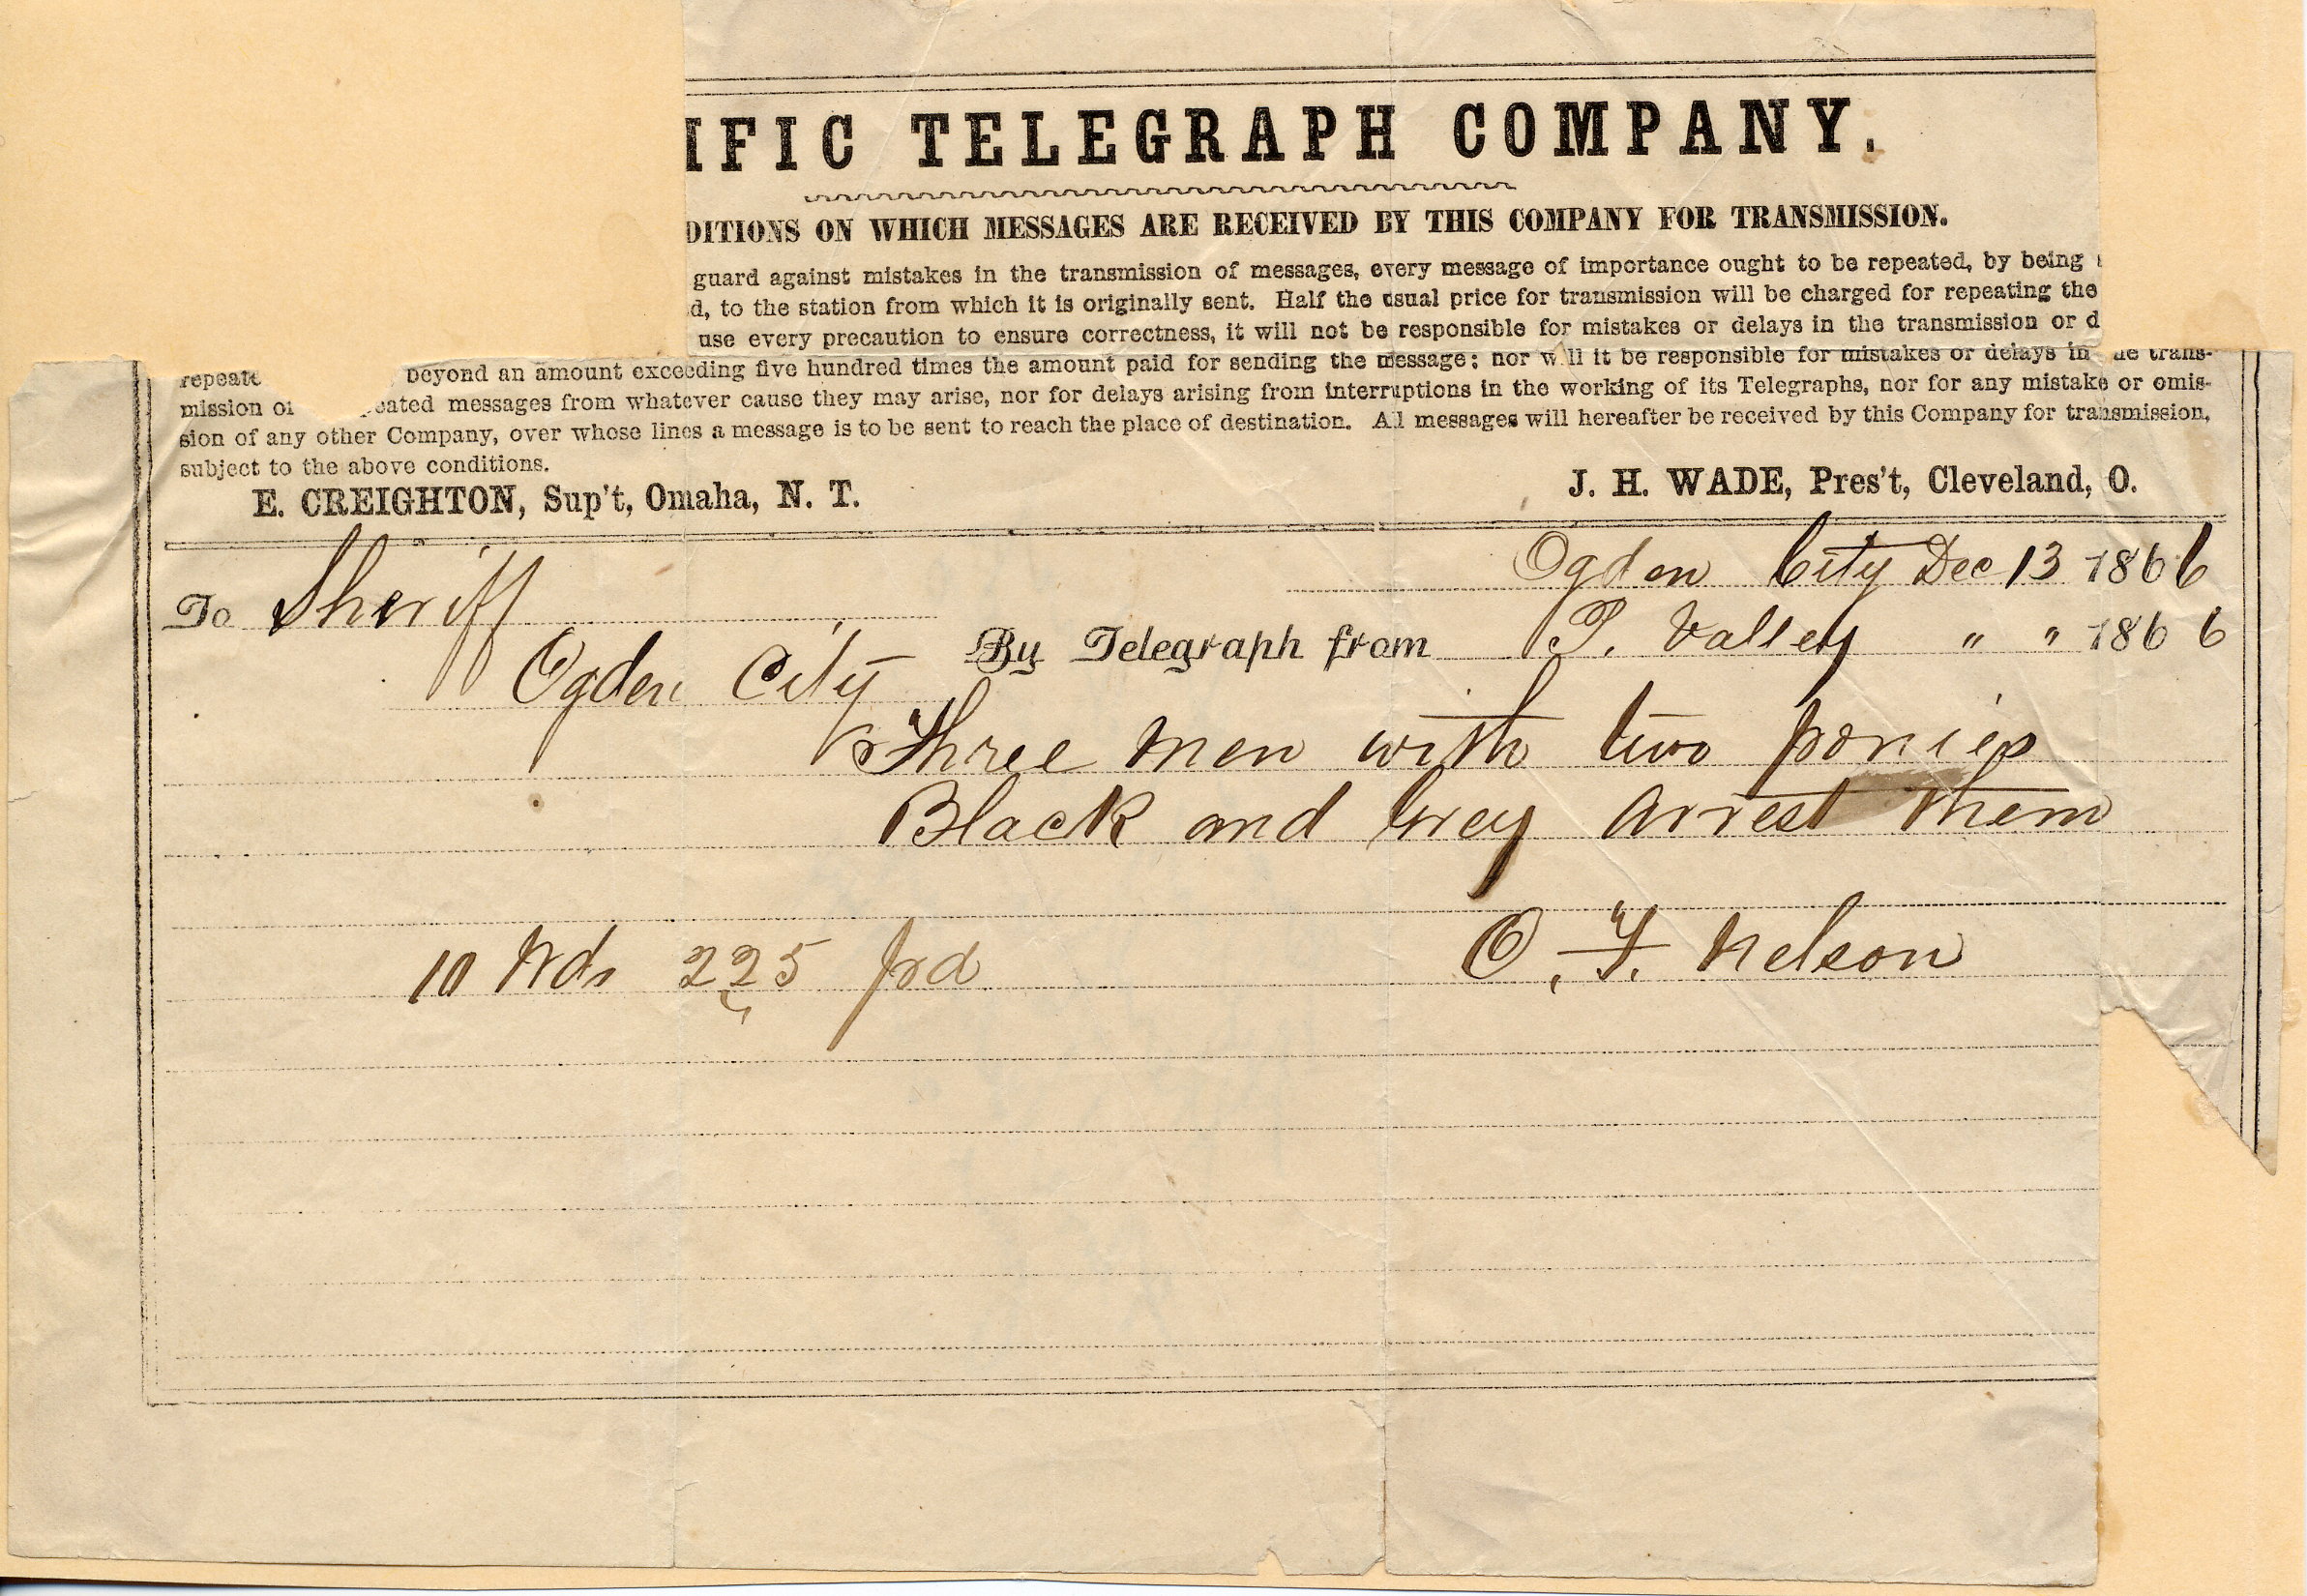 IFIC TELEGRAPH COMPANY.
DITIONS ON WHICH MESSAGES ARE RECEIVED BY THIS COMPANY FOR TRANSMISSION.
guard against mistakes in the transmission of messages, every message of importance ought to be repeated, by being
d, to the station from which it is originally sent. Half the usual price for transmission will be charged for repeating the
use every precaution to ensure correctness, it will not be responsible for mistakes or delays in the transmission or d
repeate beyond an amount exceeding five hundred times the amount paid for sending the message; nor will it be responsible for mistakes or delays in he trans-
mission of peated messages from whatever cause they may arise, nor for delays arising from interruptions in the working of its Telegraphs, nor for any mistake or omis-
sion of any other Company, over whose lines a message is to be sent to reach the place of destination. All messages will hereafter be received by this Company for transmission,
subject to the above conditions.
E. CREIGHTON, Sup't, Omaha, N. T. J. H. WADE, Pres't, Cleveland, O.
Ogden City Dec 13 1866
To Sheriff
By Telegraph from P. Valley " " 1866
Ogden City
Three men with two ponies
Black and Grey Arrest them
10 Wds 225 pd O. F. Nelson